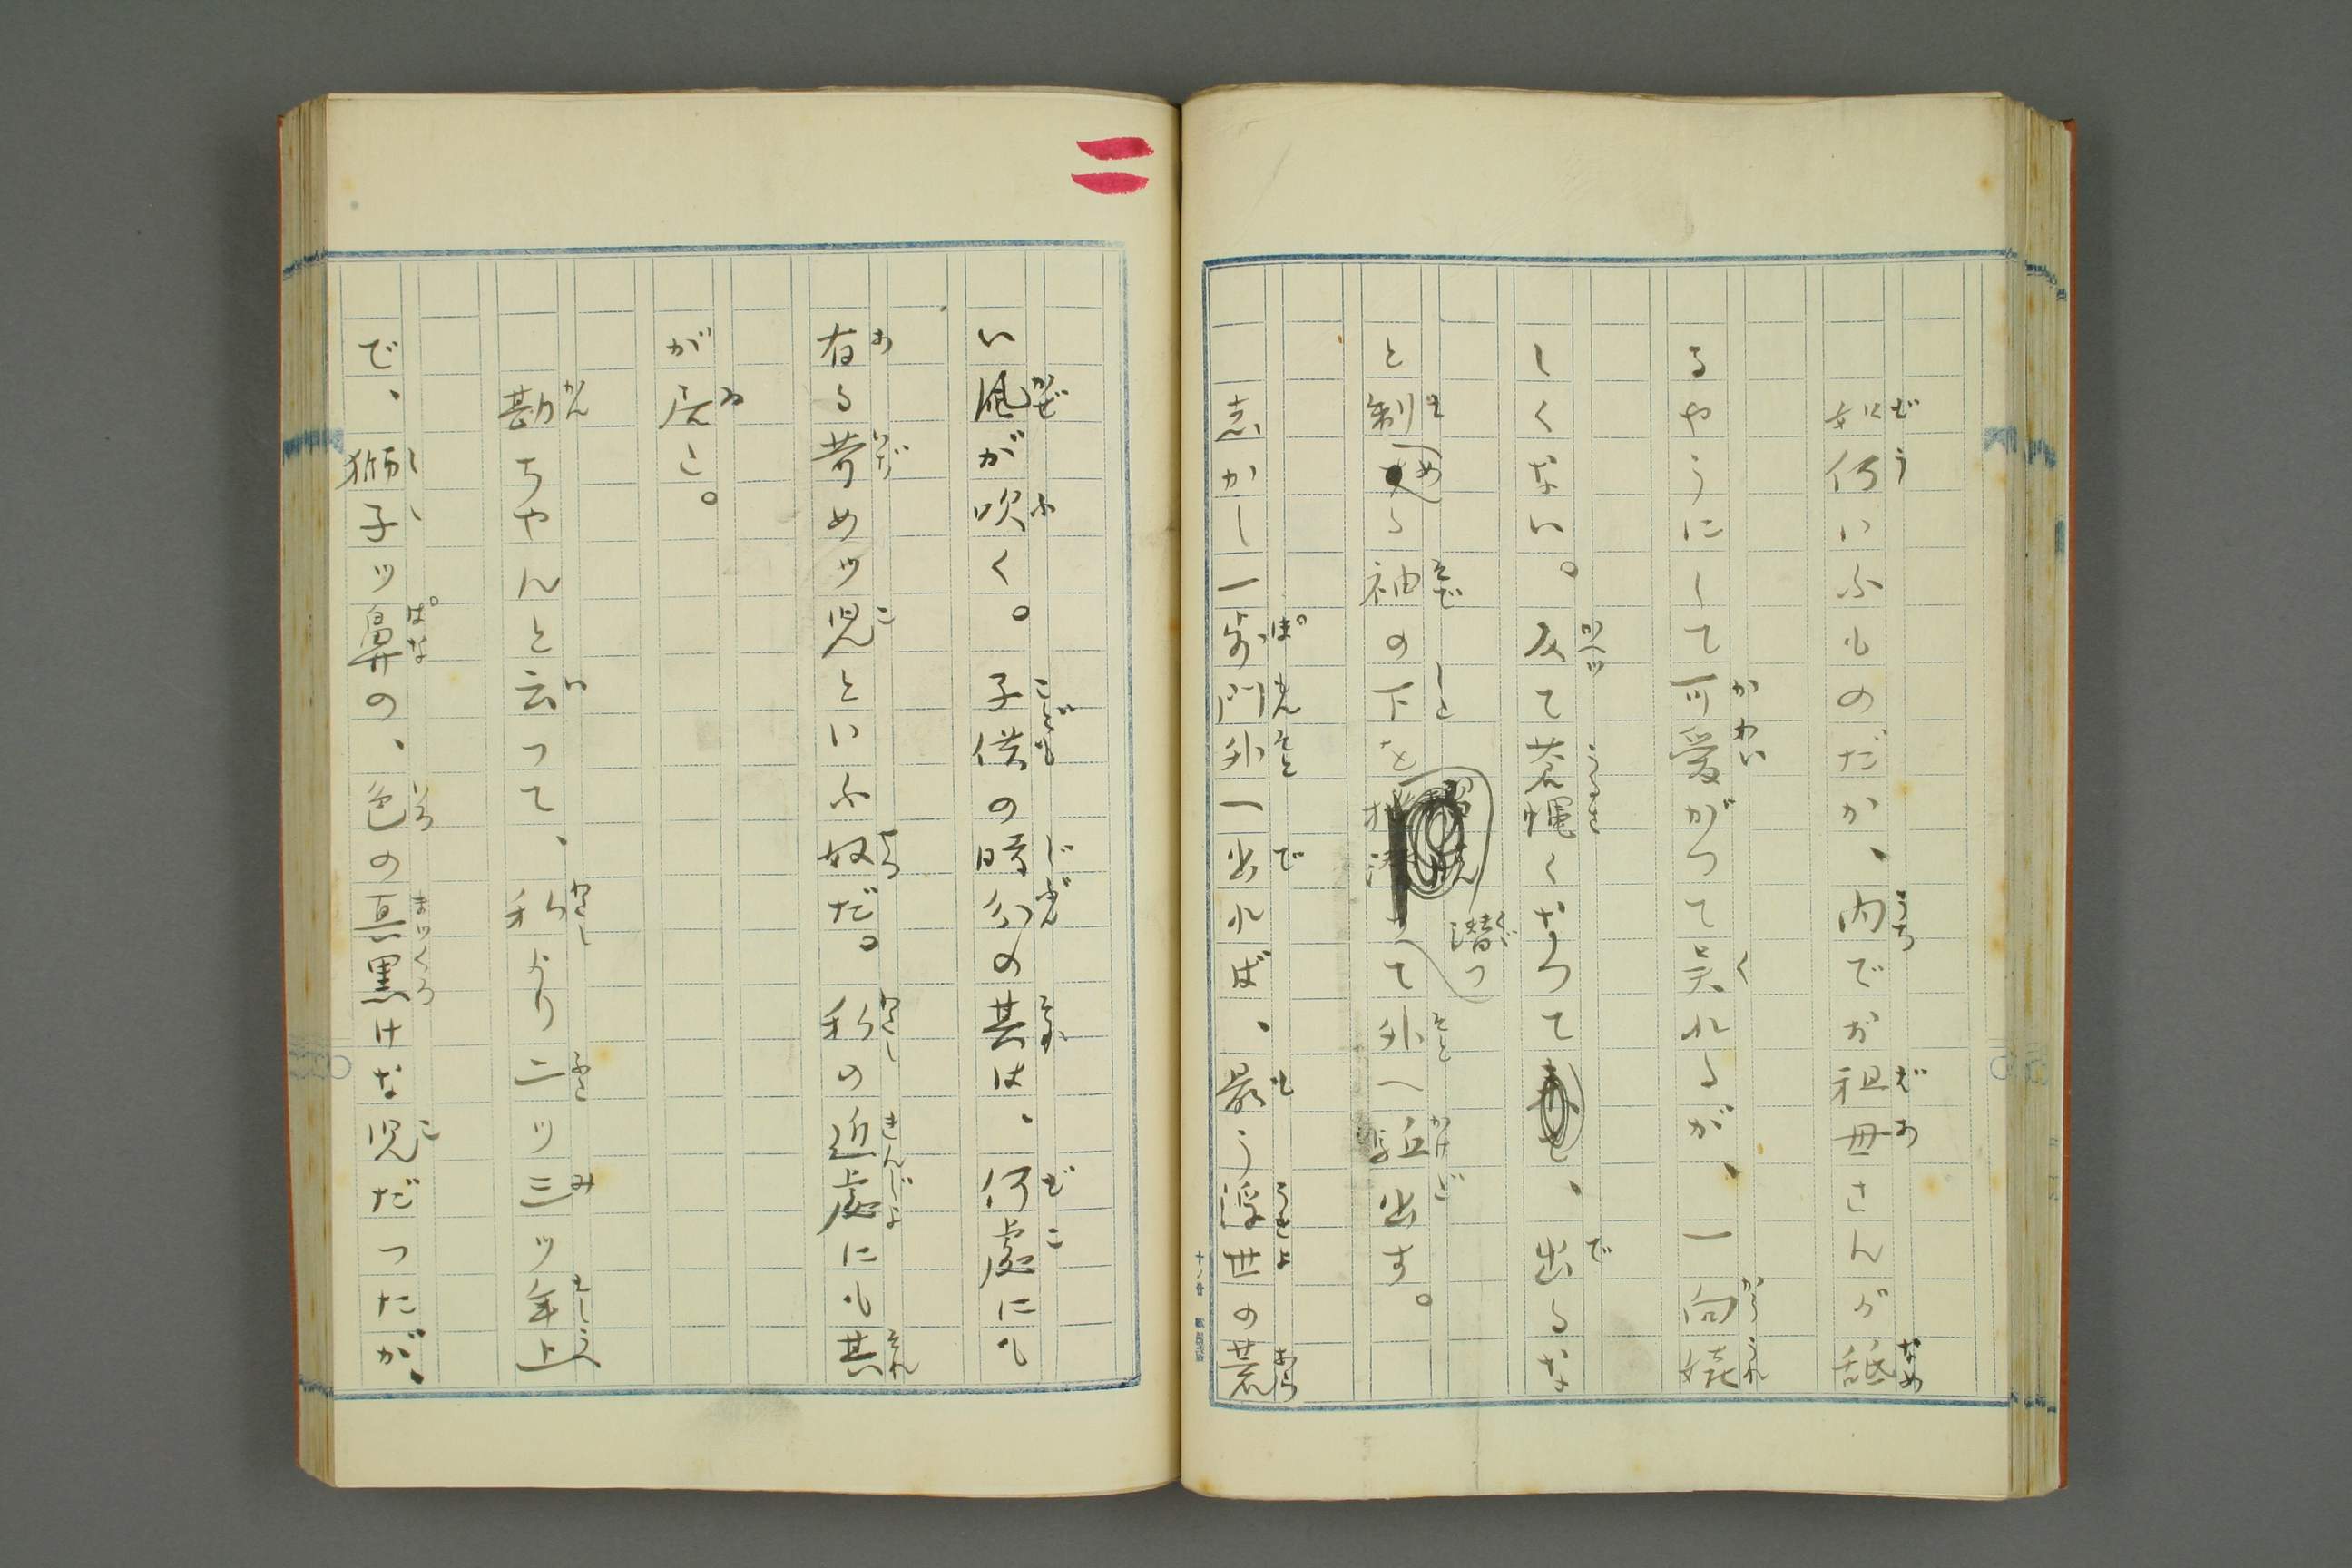 如何いふものだか、内でお祖母さんが舐
るやうにして可愛がつて呉れるが、一向嬉
しくない。反て蒼蠅くなつて、出るな
と制める袖の下を潜つて外へ駈出す。
志かし一歩門外へ出れば、最う浮世の荒
い風が吹く。子供の時分の其は、何處にも
有る苛めツ児といふ奴だ。私の近處にも其
が居た。
勘ちやんと云つて、私より二ツ三ツ年上
で、獅子ツ鼻の、色の真黒けな児だつたが、